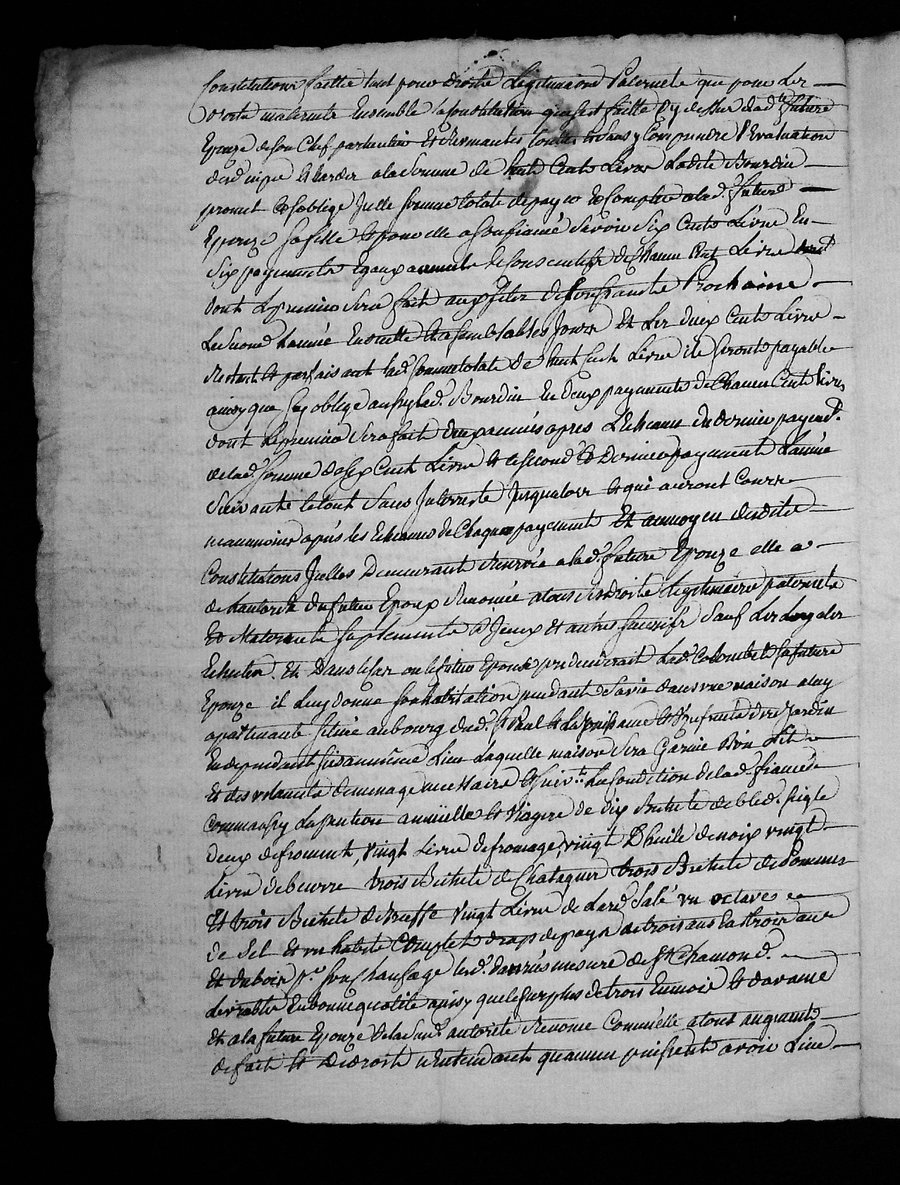 Constitutions faitte tant pour droits Legitimaire Paternele que pour Les
droits maternels Ensemble la Constitution qui sest faitte Cy dessus lad.te future
Epouze de son Chef particulier Et Revenantes toutes sans y Comprendre l'Evaluation
desd. nipes Et hardes a la Somme de huit Cents Livres Ladite Bourdin
promet & soblige Jcelle somme totale de payer & Compter a lad. future
Epouze sa fille Savoir Six Cents Livre En
Six payements Egaux annuels & Consecutifs de Chacun Cent Livre
dont Le premier Sera fait aux fetes de Prochaine
Le Second L'année Ensuitte Et a semblables Jours Et Les deux Cents Livre
Restant & parfaisant lad. Somme totale De huit Cents Livre Seront payable
ainsy que sy oblige aussy lad. Bourdin En deux payements de Chacun Cent Livres
dont Le premier Sera fait deux années apres L'Echeance du dernier payem.t
de lad. somme de Six Cents Livre & le second & Dernier payement L'année
Suivante le tout Sans Interrets Jusqualors & qui auront Cours
neanmoins après les Echeances de Chaque payement Et au moyen desdites
Constitutions Jcelles Demeurant a lad. future Epouze elle a
de Lautorité du futur Epoux Renoncé a tous Ses droits Legitimaire paternels
Et Maternels suplements D'Jceux Et autres successifs Sauf Les Loyales
Echutes. Et Dans le Cas ou le futur Epoux predecederait lad. Colombet sa future
Epouze il Luy donne son habitation pendant Sa vie dans une maison a luy
apartenante Située au bourg dud. St Paul & la jouissance & Usufruit d'un Jardin
En dependant Sis au même Lieu laquelle maison Sera Garnie D'un Lit
Et des Ustancils de menage necessaire & suiv.t La Condition de lad. fiancée
Comm'aussy La pention annüelle & Viagere de dix Bichets de bled Seigle
deux de froment, vingt Livre de fromage, vingt D'huile de noix vingt
Livre de beurre trois Bichets de Chataignes trois Bichets de Pommes
Et trois Bichets de vingt Livre de Lard Salé un octave
de Sel Et un habit Complet draps de pays de trois ans En trois ans
Et du bois p.r son Chaufage lesd. danrées mesure de St Chamond.
Livrable En bonne qualité ainsy que le surplus de trois En trois mois & davance
Et a la future Epouze de lad. autorité Renoncé Comm'elle a tout augment
de fait & De droit n'entendants quaucun puissent avoir Lieu